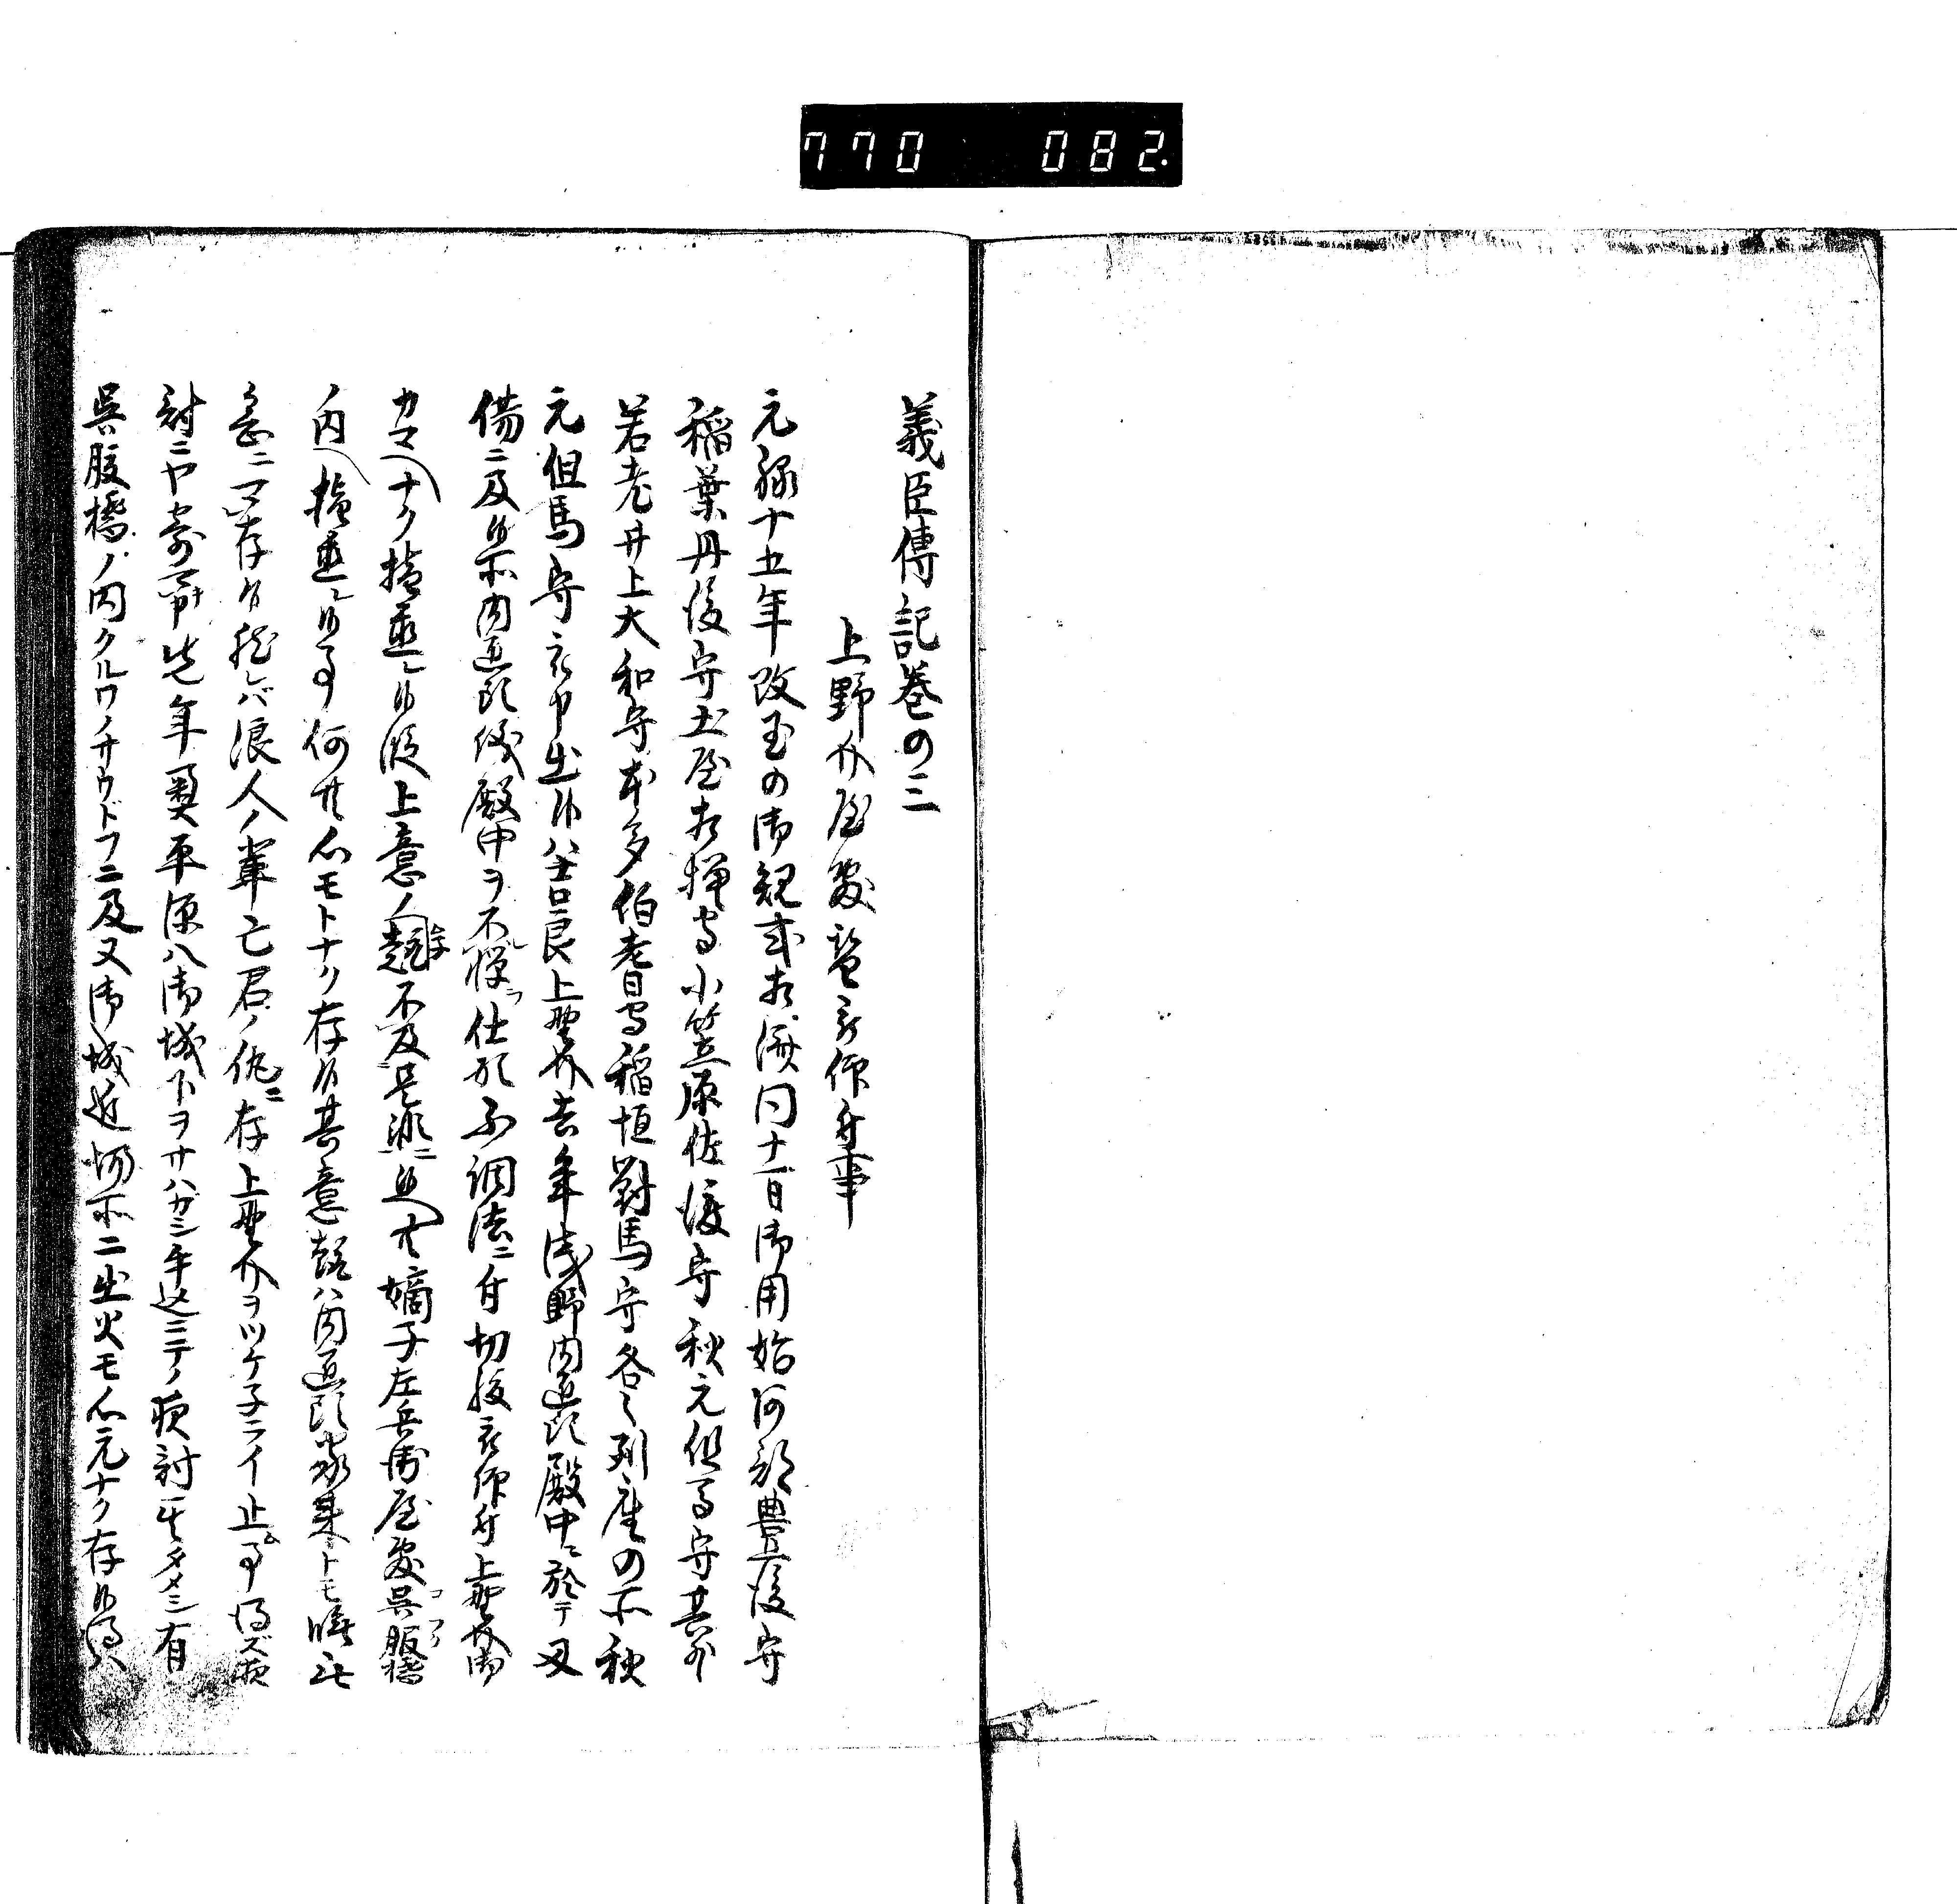 770 082.
義臣傳記巻の三
上野介屋敷替被仰付事
元禄十五年改玉の御規式相済同十一日御用始阿部豊後守
稲葉丹後守土屋相摸守小笠原佐渡守秋元但馬守其外
若老井上大和守本多伯耆守稲垣對馬守各々列座の所秋
元但馬守被申出候ハ吉良上野介去年浅野内匠頭殿中ニ於テ刃
傷ニ及候所内匠頭儀殿中ヲ不憚仕形不調法ニ付切腹被仰付上野介御
カマイナク指置レ候段上意ノ趣不及是非ニ候ヘ共嫡子左兵衛屋敷呉服橋
ノ内ヘ指置レ候事何共心モトナク存候其意趣ハ内匠頭家来トモ
存候然レバ浪人ノ輩亡君ノ仇ニ存上野介ヲツケ子ライ止事得ズ夜
討ニヤ寄可申先年奥平源八御城下ヲサハガシ手込ニテノ夜討其タメシ有
呉服橋ノ内クルワノサウドフニ及又御城近キ所ニ出火モ心元ナク存候得ハ